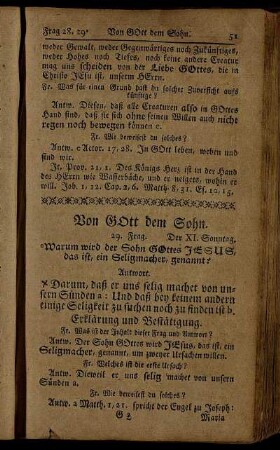 Frag 28. 29. Von GOtt dem Sohn. 51
weder Gewalt, weder Gegenwärtiges noch Zukünftiges,
weder Hohes noch Tiefes, noch keine andere Creatur
mag uns scheiden von der Liebe GOttes, die in
Christo JEsu ist, unserm HErrn.
Fr. Was für einen Grund hast du solcher Zuversicht aufs
künftige?
Antw. Diesen, daß alle Creaturen also in GOttes
Hand sind, daß sie sich ohne seinen Willen auch nicht
regen noch bewegen können c.
Fr. Wie beweisest du solches?
Antw. c Actor. 17, 28. In GOtt leben, weben und
sind wir.
It. Prov. 21, 1. Des Königs Herz ist in der Hand
des HErrn wie Wasserbäche, und er neiget es, wohin er
will. Job. 1. 12. Cap. 2, 6. Matth. 8, 31. Es. 10, 15.
Von GOtt dem Sohn.
29. Frag. Der XI. Sonntag.
Warum wird der Sohn GOttes JESUS,
das ist, ein Seligmacher, genannt?
Antwort.
Darum, daß er uns selig machet von un-
sern Sünden a: Und daß bey keinem andern
einige Seligkeit zu suchen noch zu finden ist b.
Erklärung und Bestättigung.
Fr. Was ist der Inhalt dieser Frag und Antwort?
Antw. Der Sohn GOttes wird JEsus, das ist, ein
Seligmacher, genannt, um zweyer Ursachen willen.
Fr. Welches ist die erste Ursach?
Antw. Dieweil er uns selig machet von unsern
Sünden a.
Fr. Wie beweisest du solches?
Antw. a Matth. 1, 21. spricht der Engel zu Joseph:
G 2 Maria